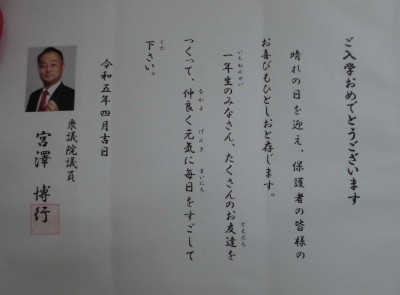 ご入学おめでとうございます
晴れの日を迎え、保護者の皆様の
お喜びもひとしおと存じます。
一年生のみなさん、たくさんのお友達を
つくって、仲良く元気に毎日をすごして
下さい。
令和五年四月吉日
衆議院議員
宮澤博行